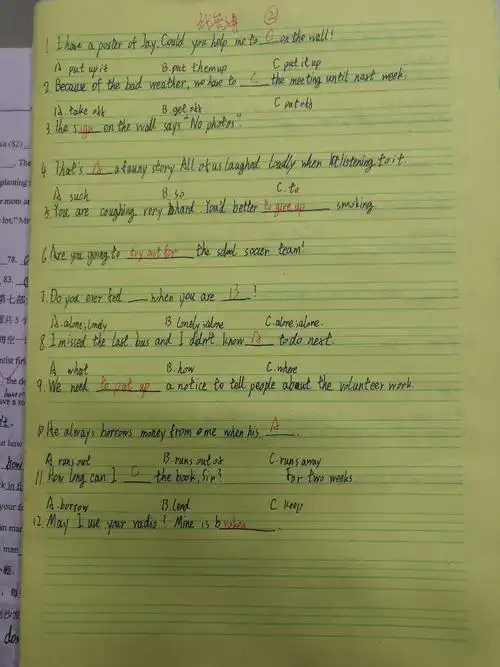 ②
1 I have a poster of Jay. Could you help me to C on the wall?
A put up it B. put them up C. put it up
2. Because of the bad weather, we have to C the meeting until next week.
A. take off B. get off C put off
3. The sign on the wall says "No photos".
4. That's A a funny story. All of us laughed loudly when listening to it.
A such B. so C. to
5. You are coughing very hard. You'd better to give up smoking
6. Are you going to try out for the school soccer team?
7. Do you ever feel when you are B ?
A. alone; lonely B lonely; alone C. alone; alone.
8. I missed the last bus and I didn't know A to do next.
A what B. how C. where
9. We need to put up a notice to tell people about the volunteer work.
10. He always borrows money from me when his A .
A runs out B. runs out of C. runs away
11. How long can I C the book, Sir? For two weeks
A. borrow B. lend C keep
12. May I use your radio? Mine is broken .